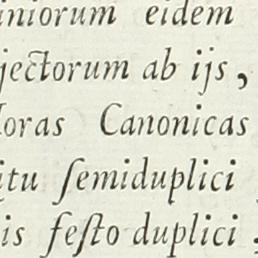 iniorum eidem
jectorum ab ijs,
loras Canonicas
itu ſemiduplici
is feſto duplici